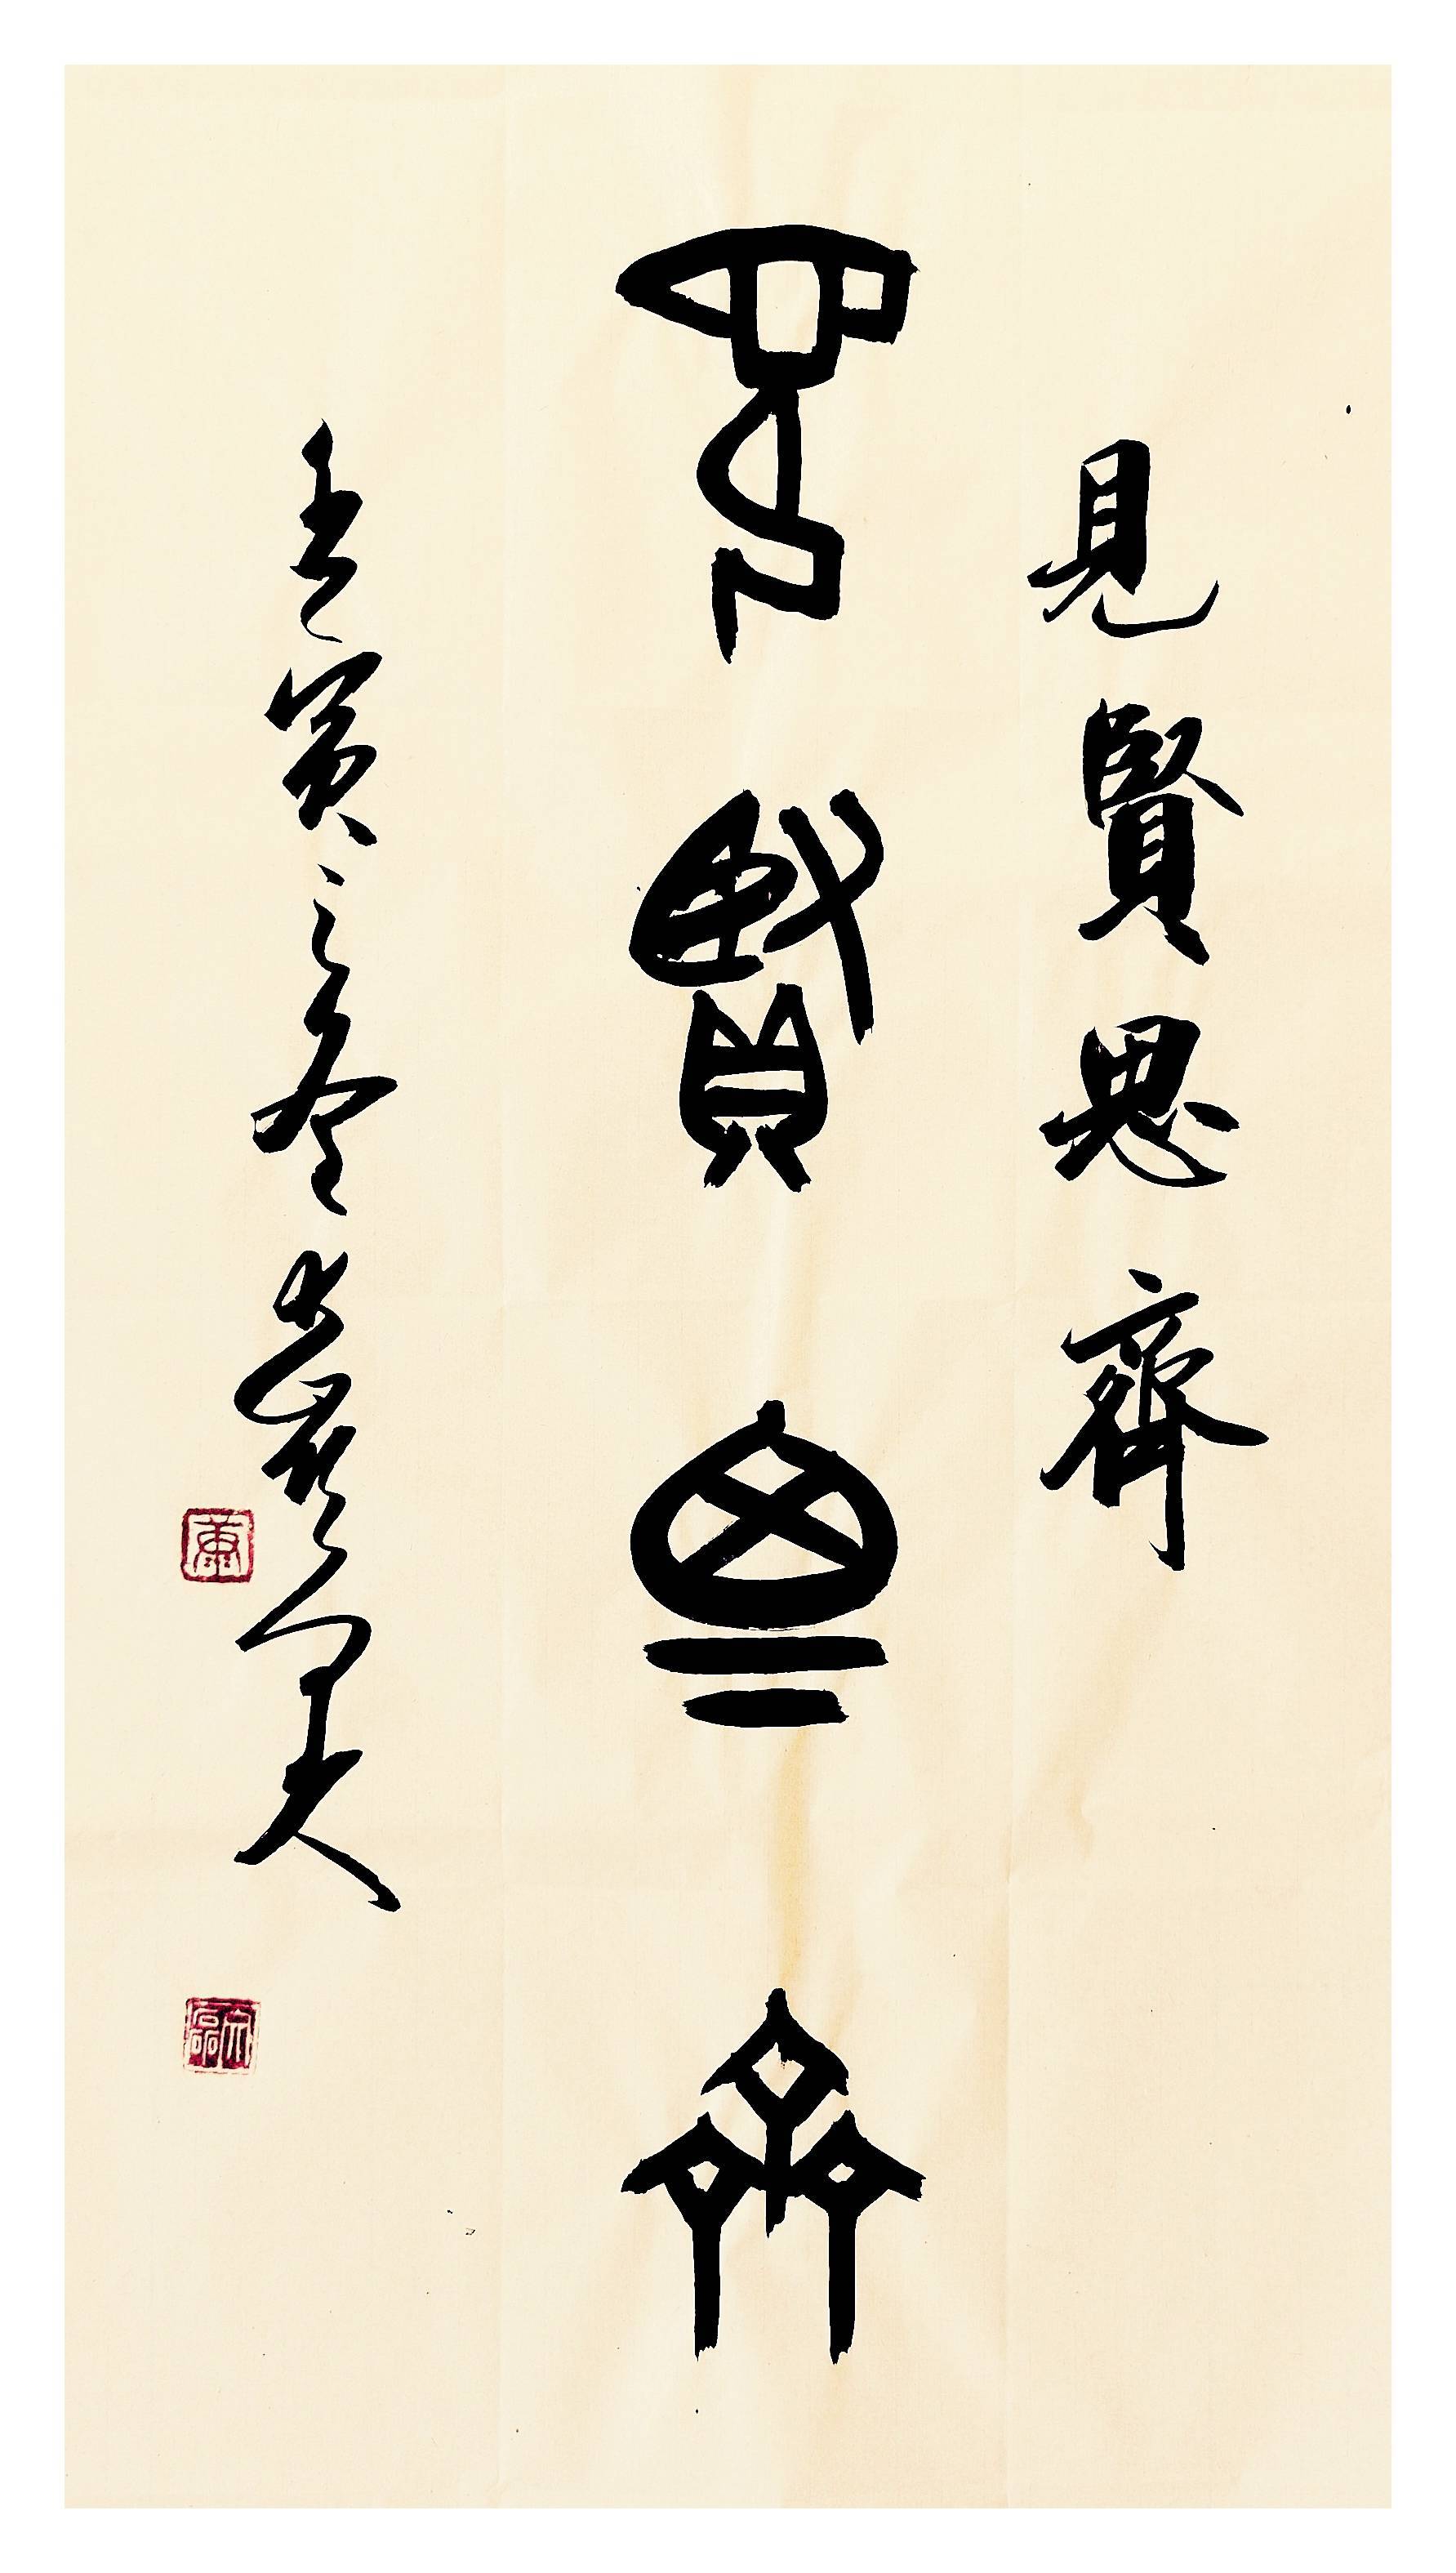 見賢思齊
見賢思齊
壬寅之冬